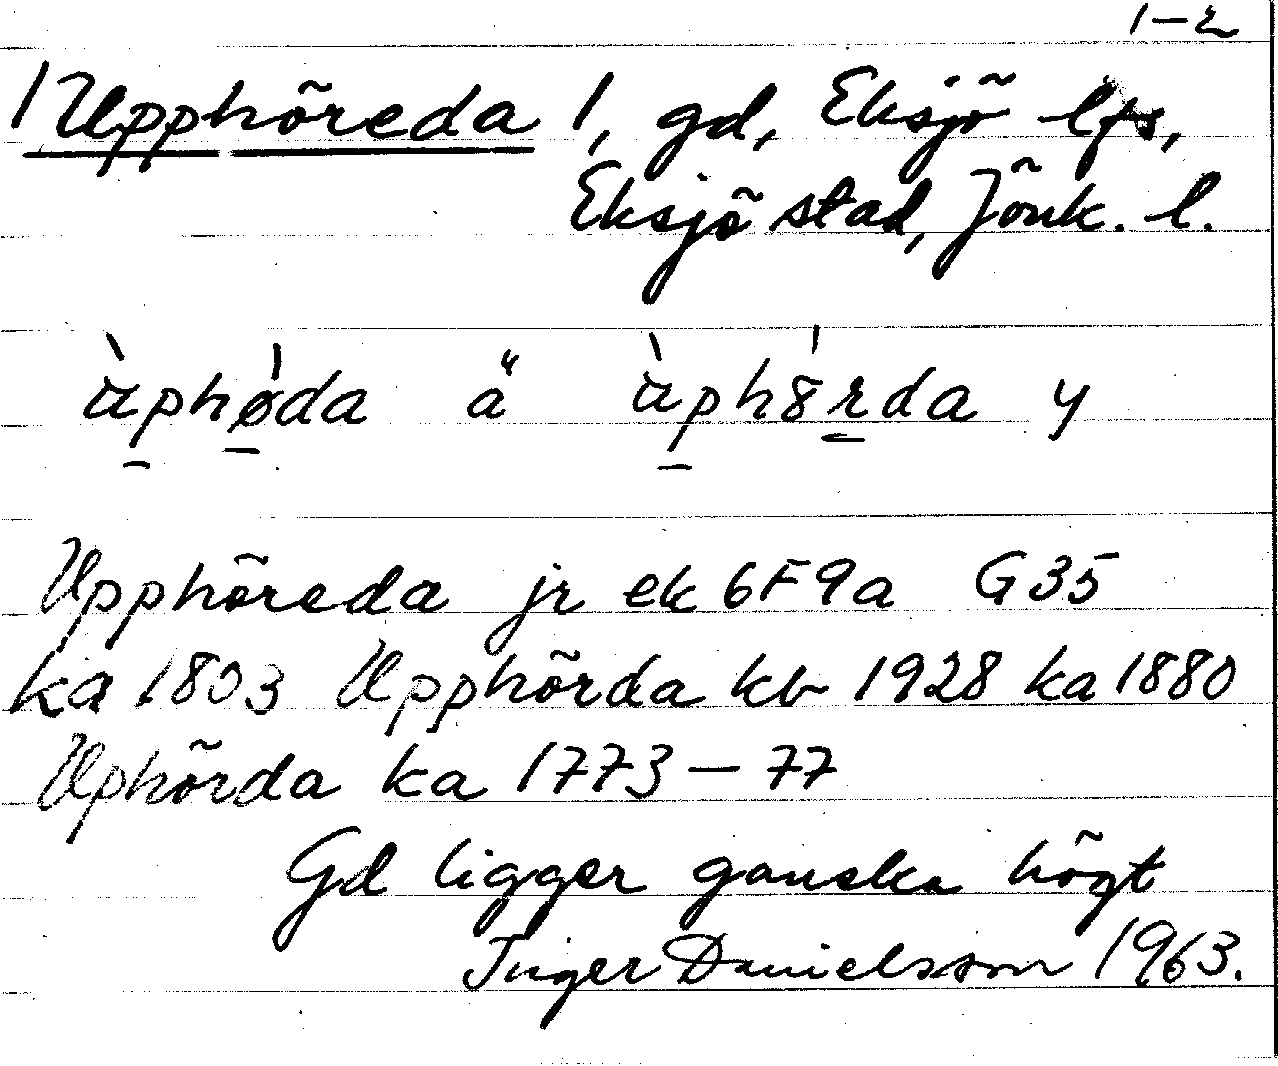 1-2
/Upphöreda/, gd, Eksjö lfs,
Eksjö stad, Jönk. l.
àphøda ä àphörda y
Upphöreda jr ek 6F9a G35
ka 1803 Upphörda kb 1928 ka 1880
Uphörda ka 1773-77
Gd ligger ganska högt
Inger Danielsson 1963.